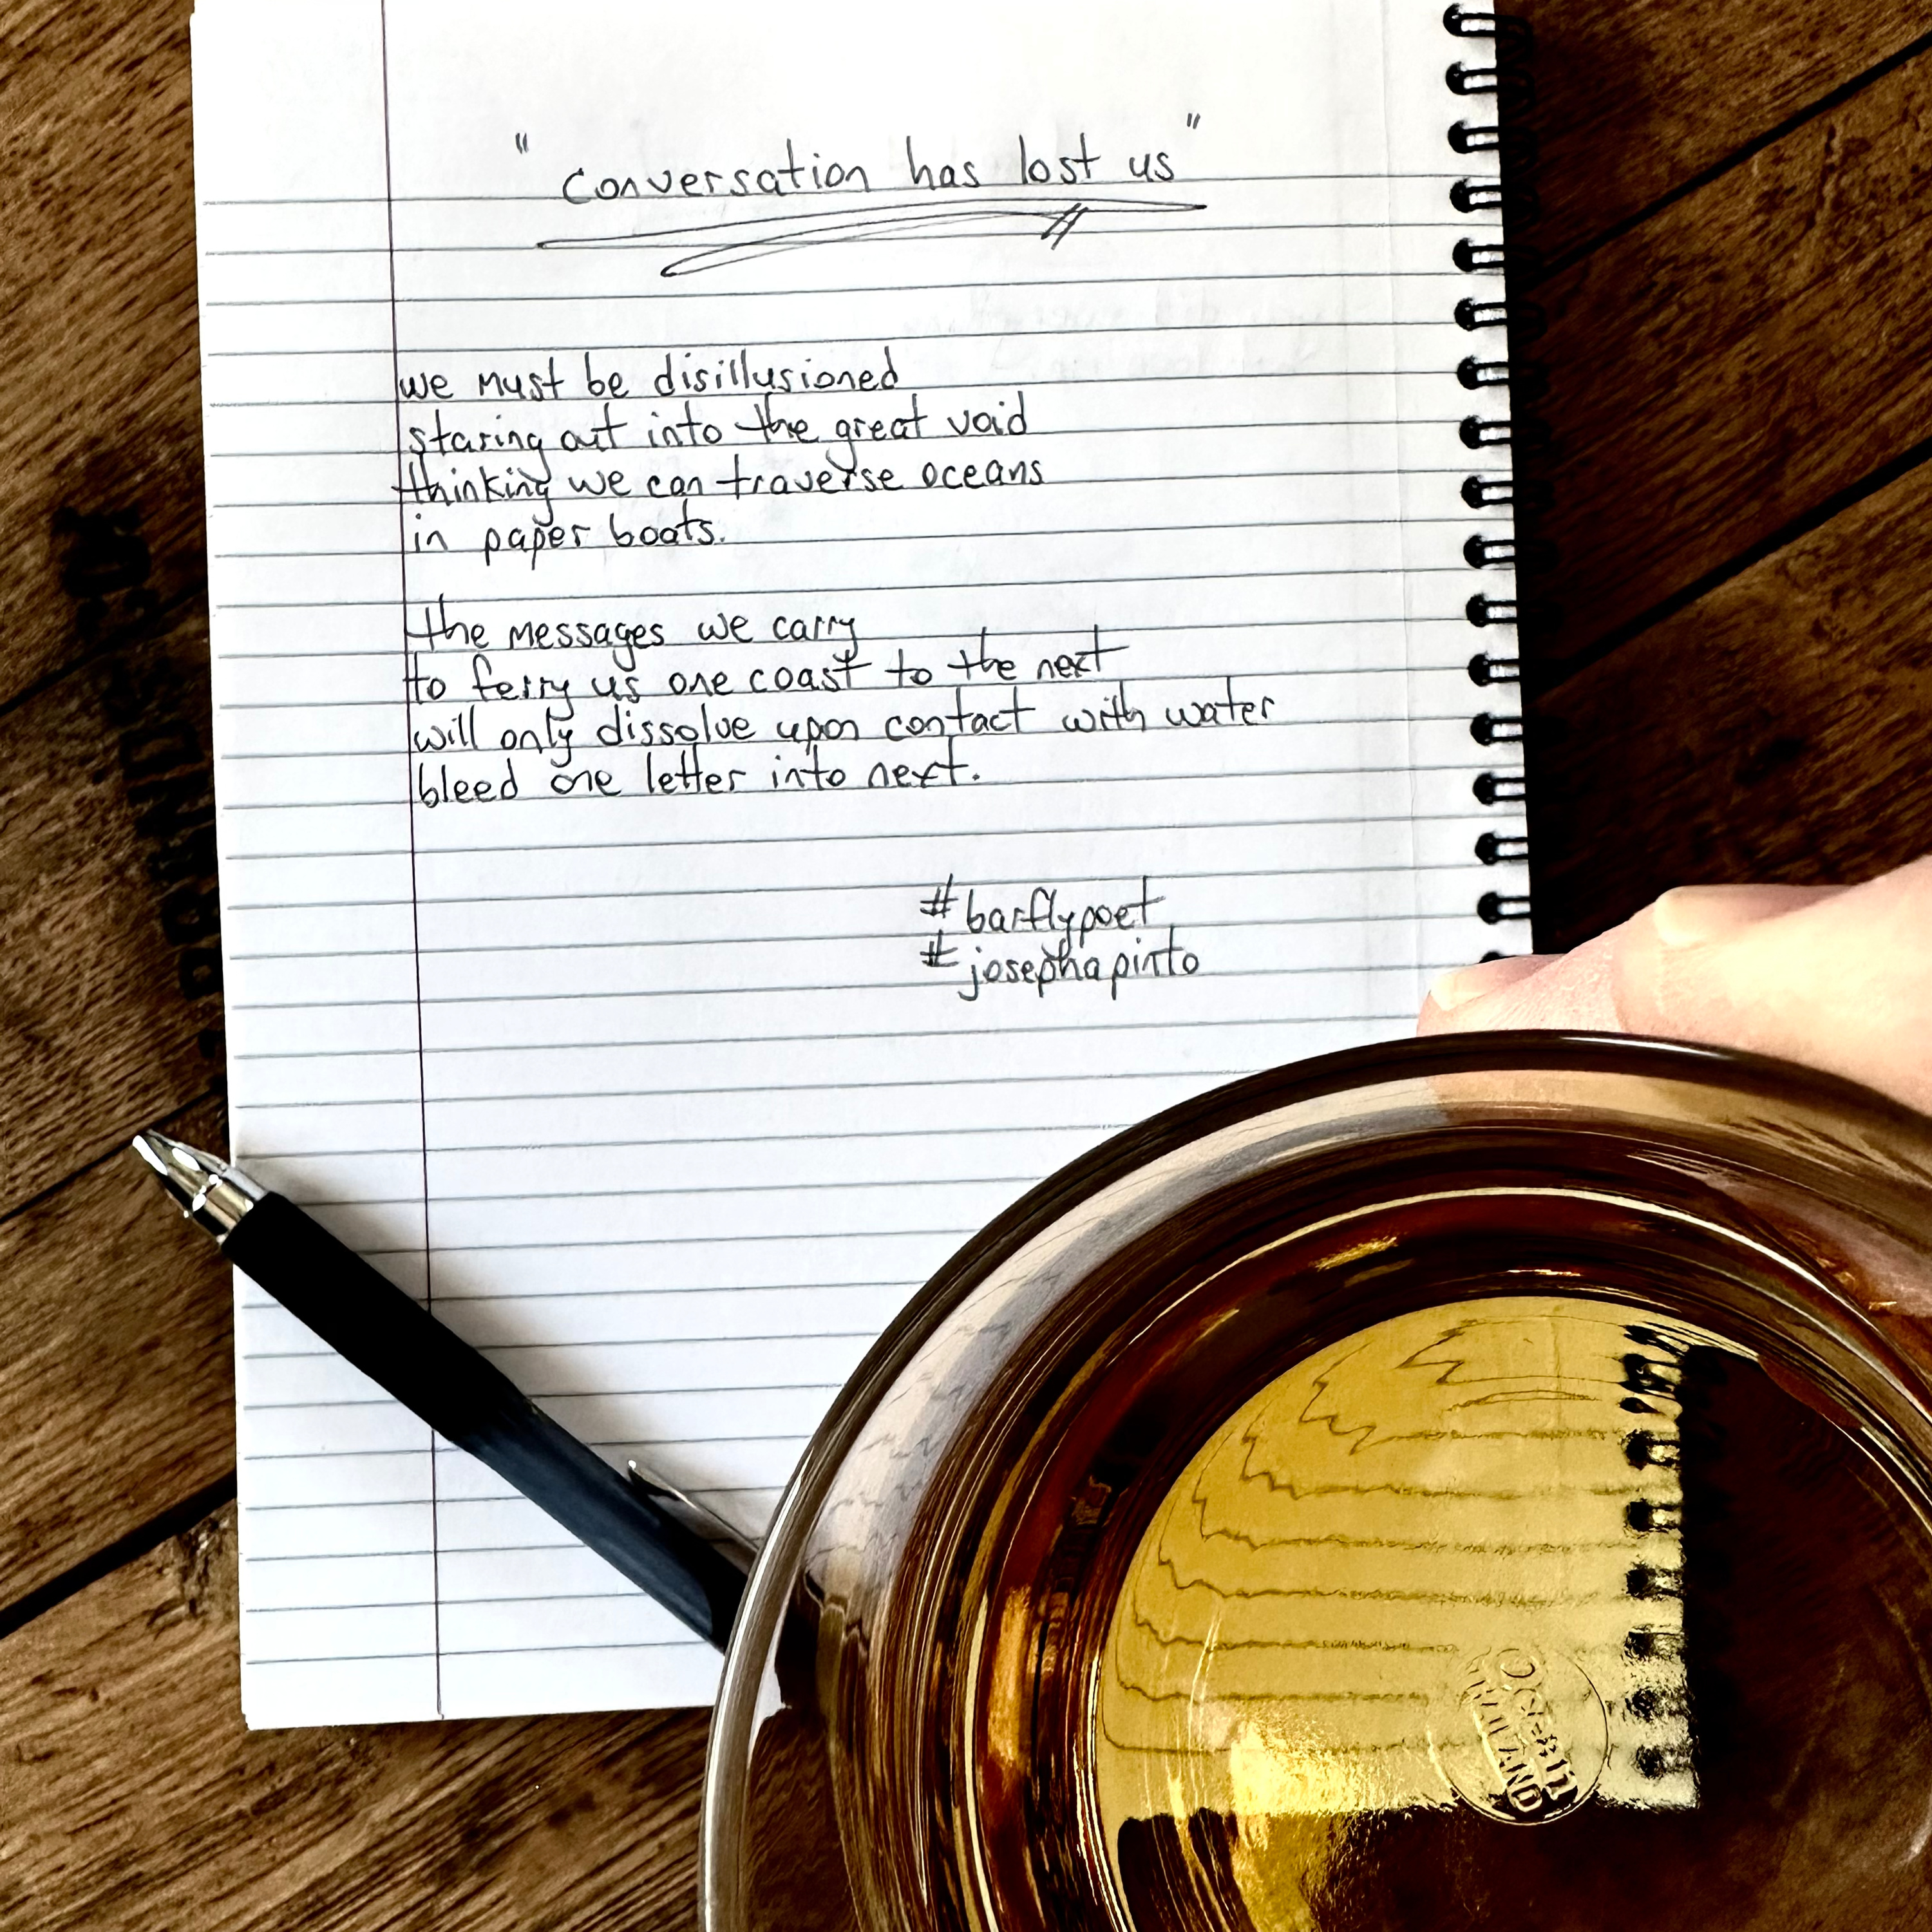 "conversation has lost us"
we must be disillusioned
staring out into the great void
thinking we can traverse oceans
in paper boats.
the messages we carry
to ferry us one coast to the next
will only dissolve upon contact with water
bleed one letter into next.
#barflypoet
#josephapinto
Ocean
THAILAND